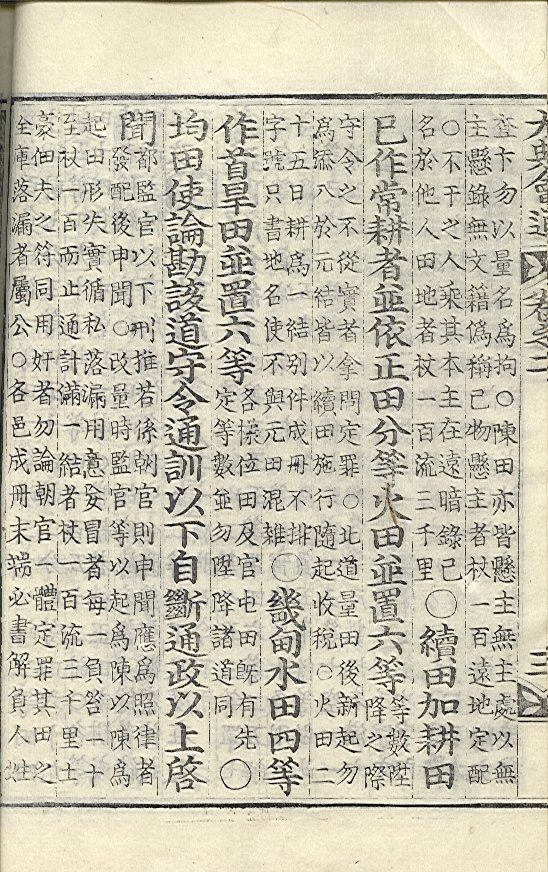 大典會通 卷之二 三
查卞勿以量名爲拘○陳田亦皆懸主無主處以無
主懸錄無文籍僞稱己物懸主者杖一百遠地定配
○不干之人乘其本主在遠暗錄己
名於他人田地者杖一百流三千里
○續田加耕田
已作常耕者並依正田分等火田並置六等
等數陞
降之際
守令之不從實者拿問定罪○此道量田後新起勿
爲添入於元結皆以續田施行隨起收稅○火田二
十五日耕爲一結別件成冊不排
字號只書地名使不與元田混雜
○畿甸水田四等
作首旱田並置六等
各樣位田及官屯田旣有先
定等數並勿陞降諸道同
○
均田使論勘該道守令通訓以下自斷通政以上啓
聞
都監官以下刑推若係朝官則申聞應爲照律者
發配後申聞○改量時監官等以起爲陳以陳爲
起田形失實循私落漏用意妄冒者每一負笞一十
至杖一百而止通計滿一結者杖一百流三千里土
豪佃夫之符同用奸者勿論朝官一體定罪其田之
全庫落漏者屬公○各邑成冊末端必書解負人姓